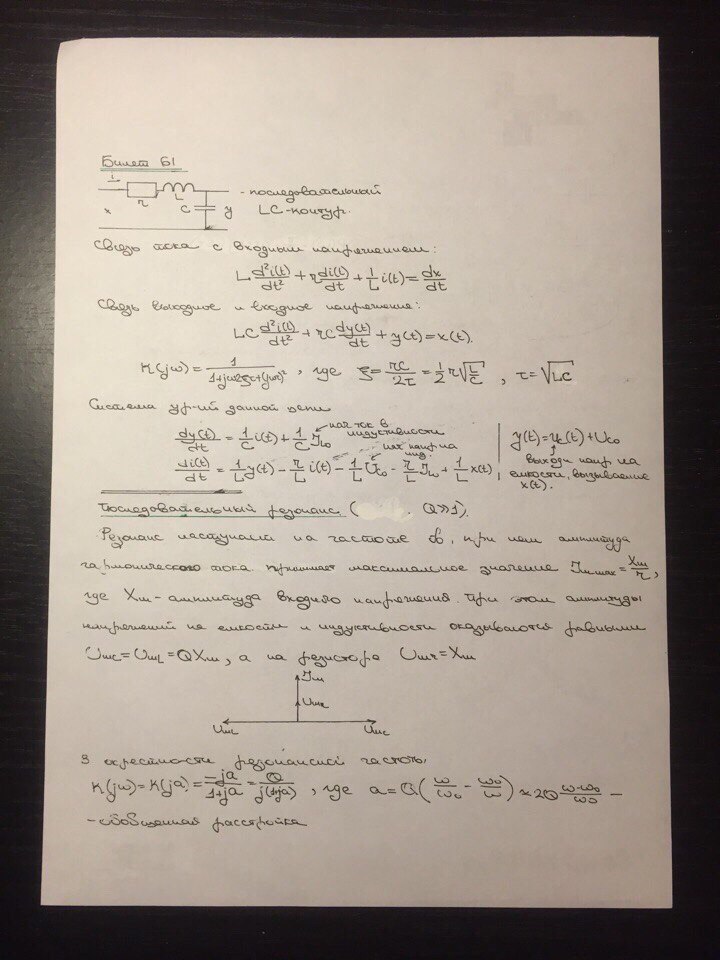 Билет 61
i
r L C
x y
- последовательный
LC-контур.
Связь тока с входным напряжением:
L d²i(t)/dt² + r di(t)/dt + 1/L i(t) = dx/dt
Связь выходное и входное напряжение:
LC d²i(t)/dt² + rC dy(t)/dt + y(t) = x(t).
K(jω) = 1/(1+jω2ξτ+(jωτ)²), где ξ = rC/2τ = 1/2 r√(L/C), τ = √LC
Система ур-ий данной цепи
нач ток в индуктивности
dy(t)/dt = 1/C i(t) + 1/C J_L0
нач напр на
di(t)/dt = 1/L y(t) - r/L i(t) - 1/L U_c0 - r/L J_L0 + 1/L x(t)
y(t) = u_c(t) + U_c0
выходн напр на
емкости, вызываемое
x(t).
Последовательный резонанс ( Q≫1).
Резонанс наступает на частоте ω₀, при нем амплитуда
гармонического тока принимает максимальное значение J_m max = X_m/r,
где X_m - амплитуда входного напряжения. При этом амплитуды
напряжений на емкости и индуктивности оказываются равными
U_mC = U_mL = QX_m, а на резисторе U_mr = X_m
J_m
U_mR
U_mL U_mC
В окрестности резонансной частоты
K(jω) = K(ja) = -ja/(1+ja) = Q/(j(1+ja)), где a = Q(ω/ω₀ - ω₀/ω) × 2Q (ω-ω₀)/ω₀ -
- обобщенная расстройка